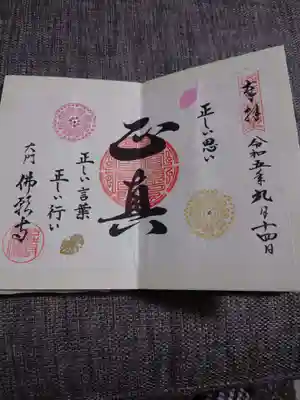 奉拝
令和五年九月十四日
正しい思い
正真
正しい言葉
正しい行い
佛願寺